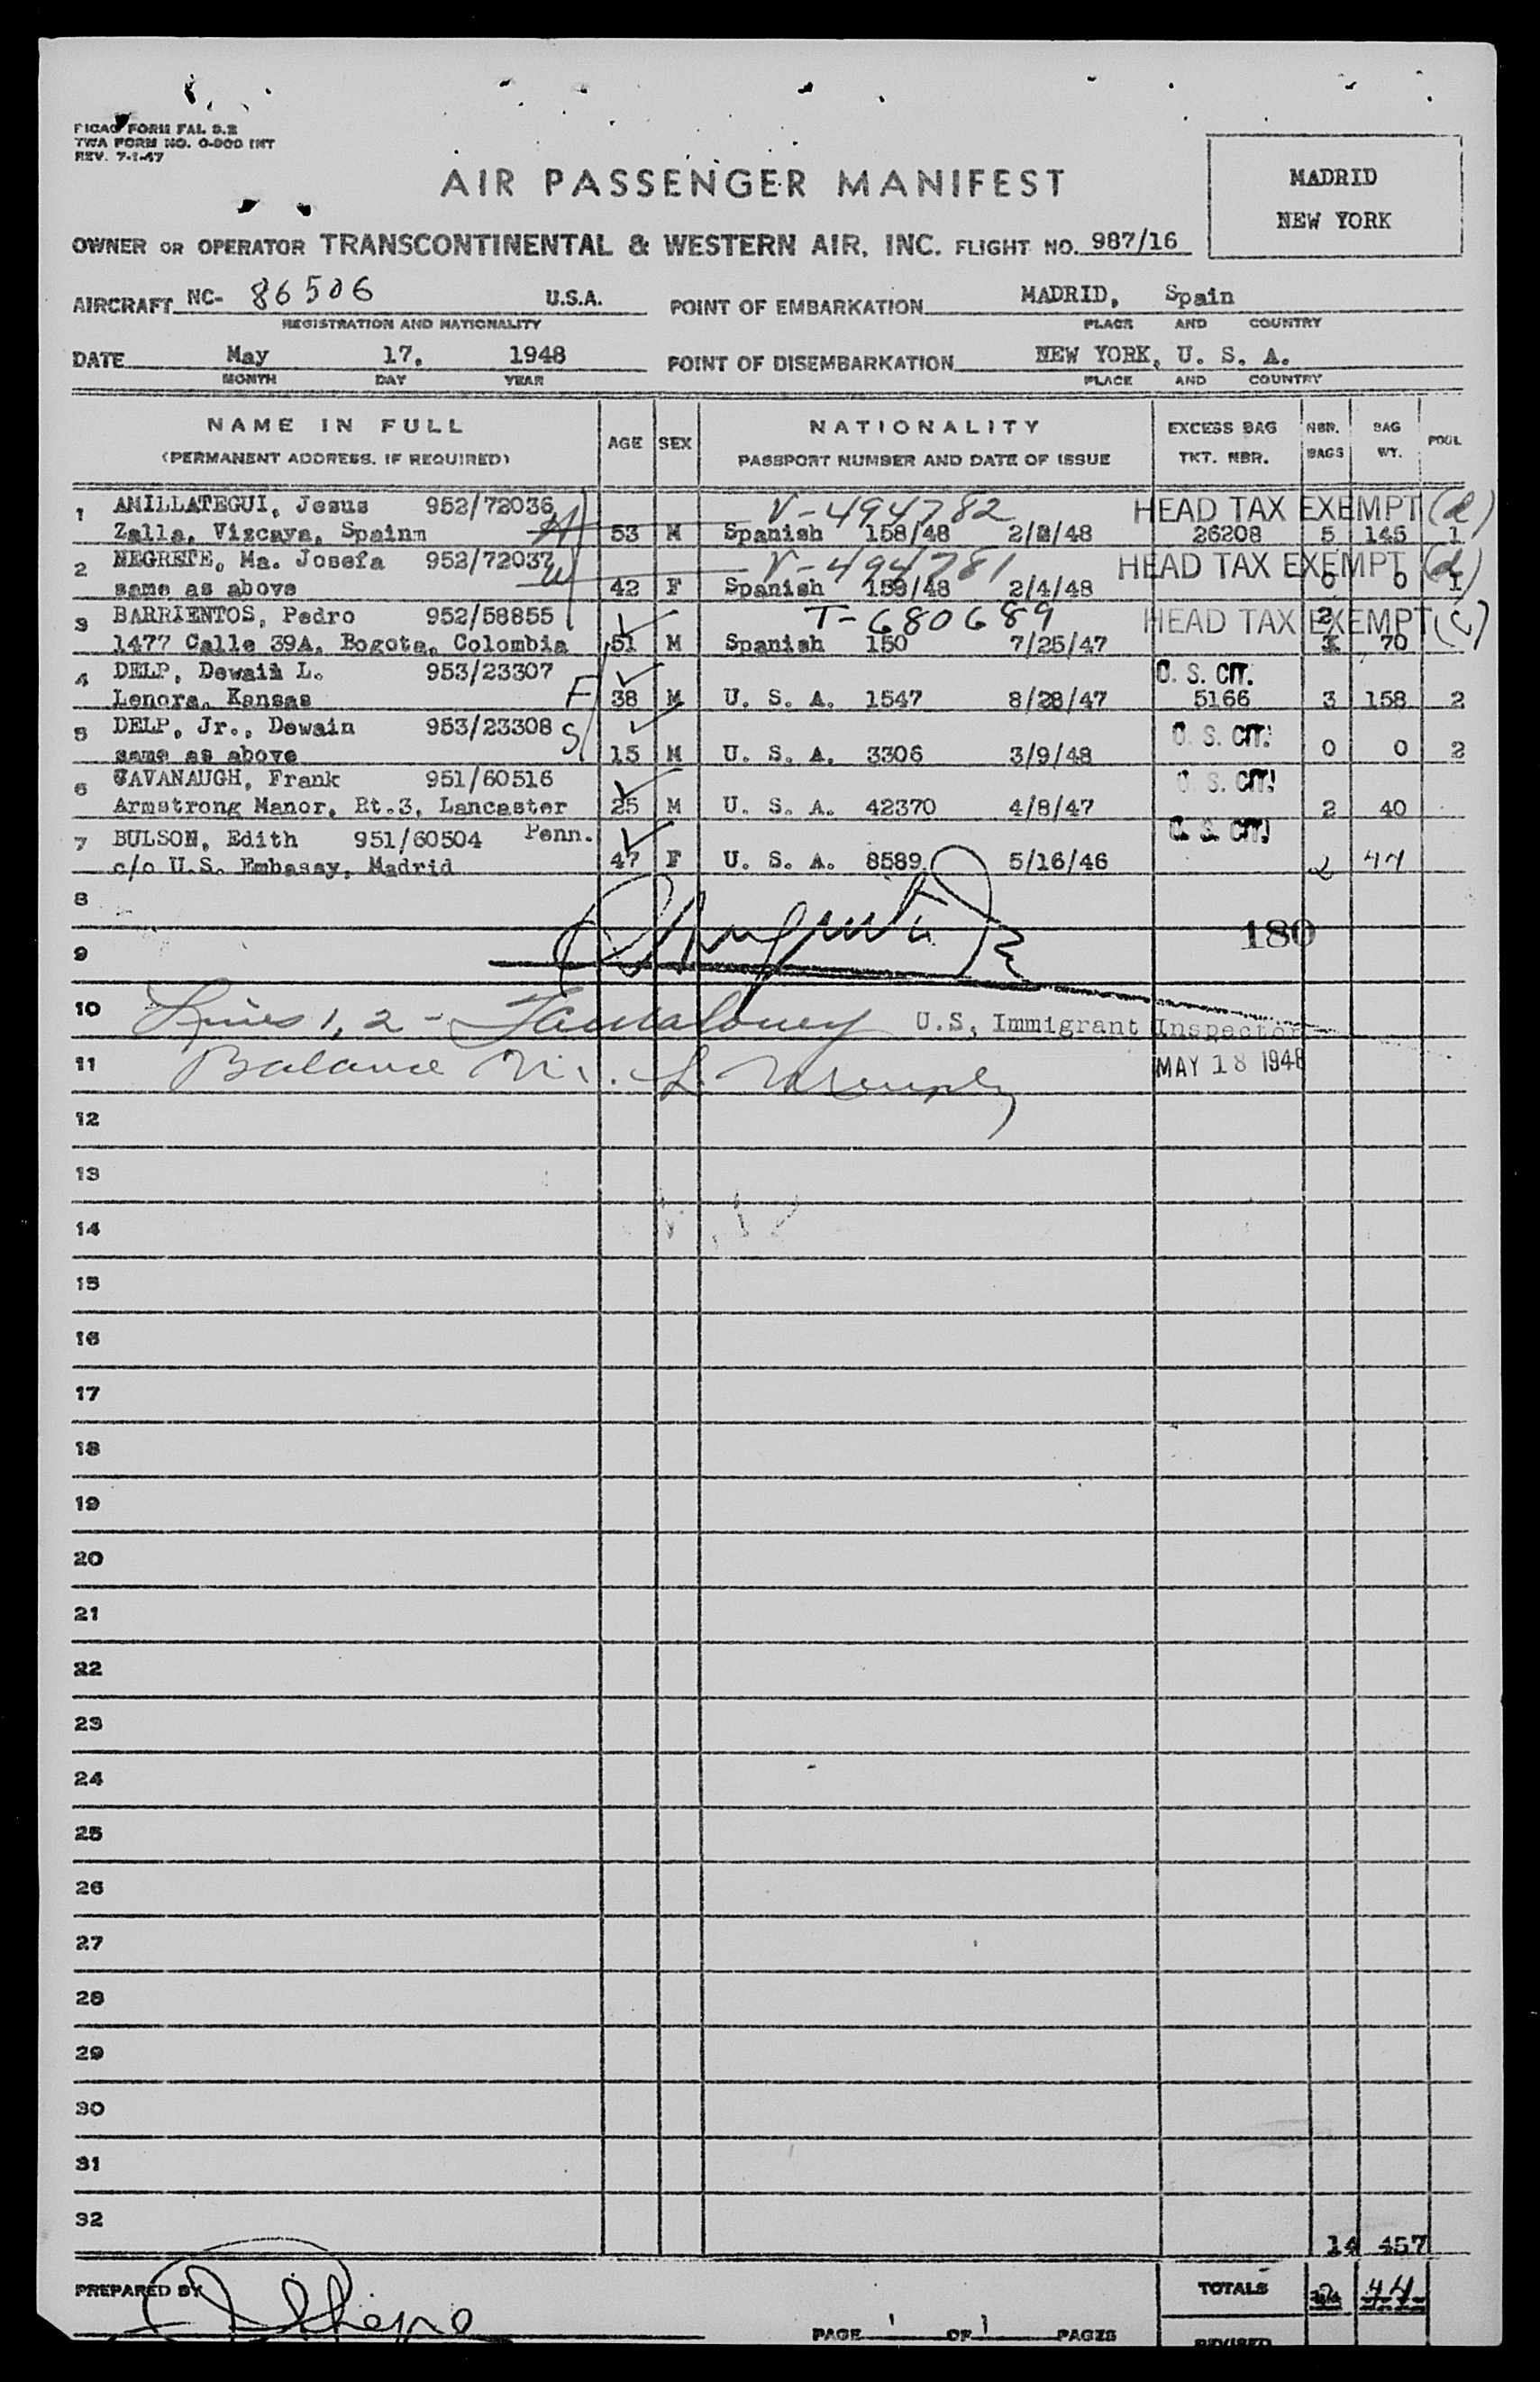 PICAO FORM FAL S.2
TWA FORM NO. O-900 INT
REV. 7-1-47
AIR PASSENGER MANIFEST
MADRID
NEW YORK
OWNER OR OPERATOR TRANSCONTINENTAL & WESTERN AIR, INC. FLIGHT NO. 987/16
AIRCRAFT NC- 86506 U.S.A. POINT OF EMBARKATION MADRID, Spain
REGISTRATION AND NATIONALITY PLACE AND COUNTRY
DATE May 17, 1948 POINT OF DISEMBARKATION NEW YORK, U. S. A.
MONTH DAY YEAR PLACE AND COUNTRY
NAME IN FULL AGE SEX NATIONALITY EXCESS BAG NBR. BAG POOL
(PERMANENT ADDRESS, IF REQUIRED) PASSPORT NUMBER AND DATE OF ISSUE TKT. NBR. BAGS WT.
1 AMILLATEGUI, Jesus 952/72036 V-494782 HEAD TAX EXEMPT (d)
Zalla, Vizcaya, Spainm H 53 M Spanish 158/48 2/2/48 26208 5 145 1
2 NEGRETE, Ma. Josefa 952/72037 V-494781 HEAD TAX EXEMPT (d)
same as above W 42 F Spanish 159/48 2/4/48 0 0 1
3 BARRIENTOS, Pedro 952/58855 T-680689 HEAD TAX EXEMPT (c) 2
1477 Calle 39A, Bogota, Colombia 51 M Spanish 150 7/25/47 70
4 DELP, Dewain L. 953/23307 U. S. CIT.
Lenora, Kansas F 38 M U. S. A. 1547 8/28/47 5166 3 158 2
5 DELP, Jr., Dewain 953/23308 S U. S. CIT.
same as above 15 M U. S. A. 3306 3/9/48 0 0 2
6 CAVANAUGH, Frank 951/60516 U. S. CIT.
Armstrong Manor, Rt.3, Lancaster 25 M U. S. A. 42370 4/8/47 2 40
7 BULSON, Edith 951/60504 Penn. U. S. CIT.
c/o U.S. Embassy, Madrid 47 F U. S. A. 8589 5/16/46 2 44
8
180
9
10 Lines 1, 2 - U.S, Immigrant Inspector
11 Balance MAY 18 1948
12
13
14
15
16
17
18
19
20
21
22
23
24
25
26
27
28
29
30
31
32
14 457
PREPARED BY TOTALS 44
PAGE 1 OF 1 PAGES
REVISED